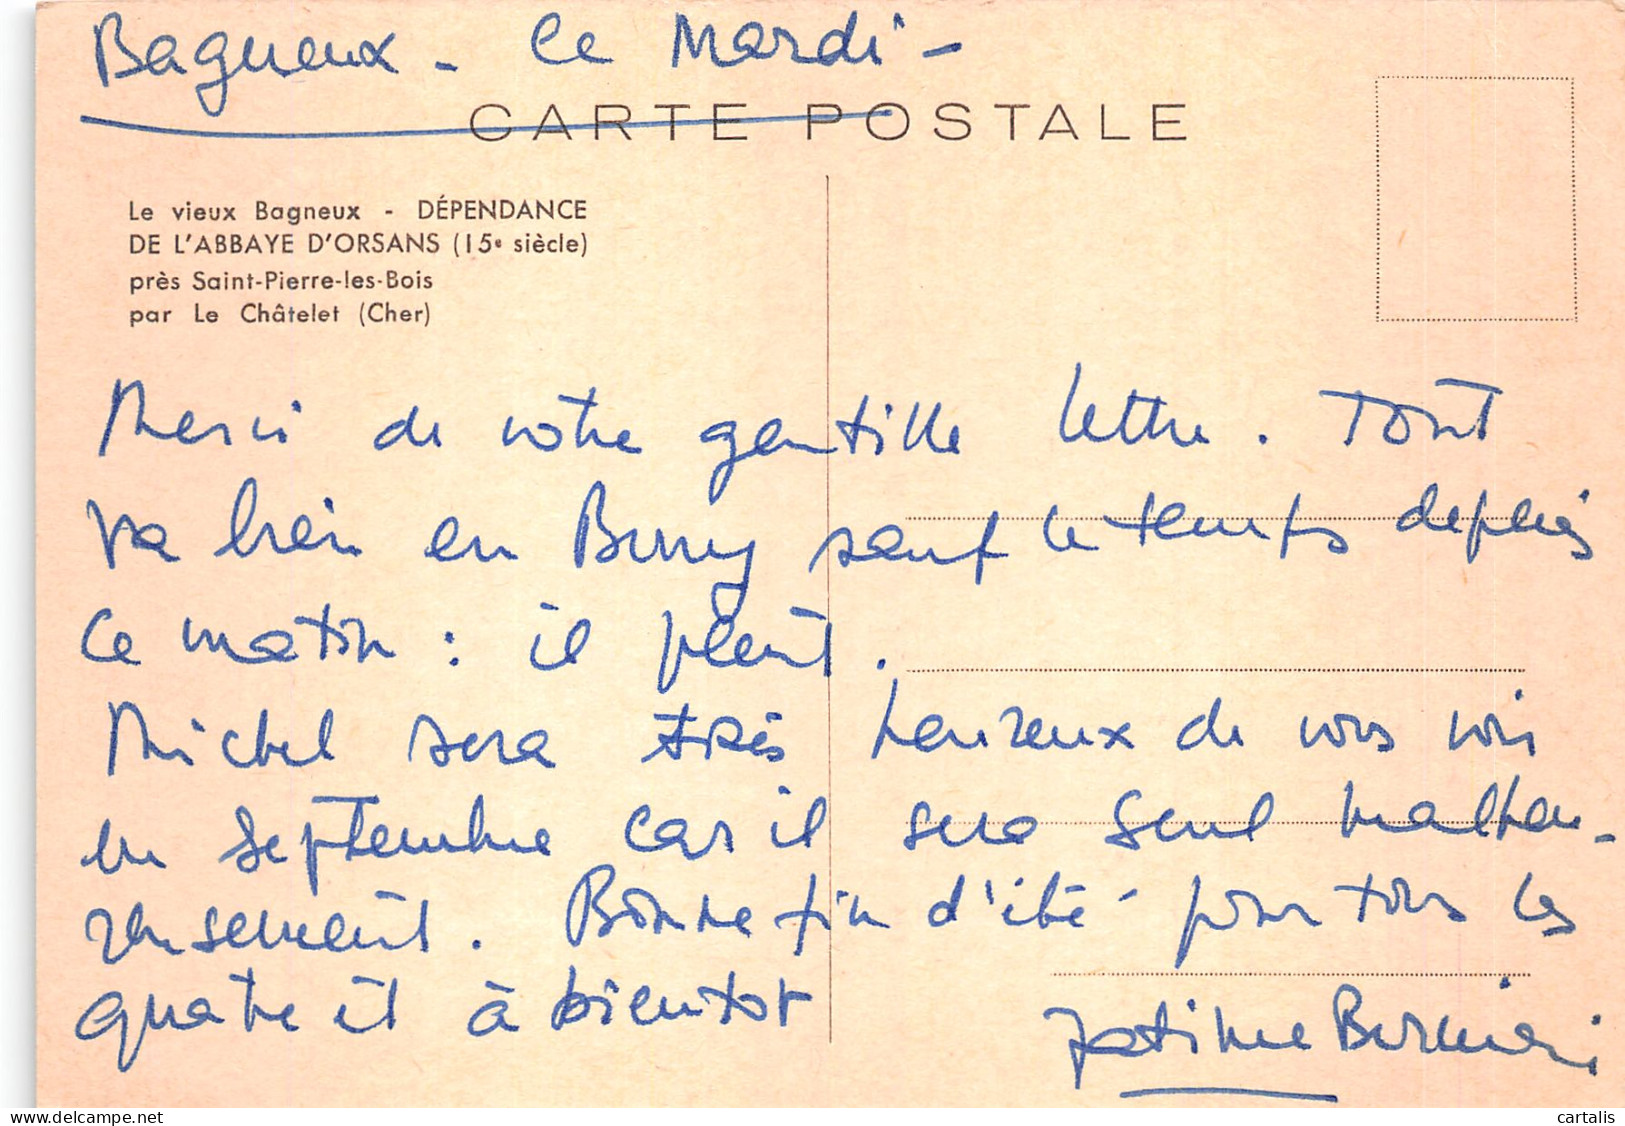 Bagneux - Ce Mardi -
CARTE POSTALE
Le vieux Bagneux - DÉPENDANCE
DE L'ABBAYE D'ORSANS (15e siècle)
près Saint-Pierre-les-Bois
par Le Châtelet (Cher)
Merci de votre gentille lettre. Tout
va bien en Berry sauf le temps depuis
ce matin : il pleut.
Michel sera très heureux de vous voir
en septembre car il sera seul malheu-
reusement. Bonne fin d'été pour tous les
quatre et à bientot
cartalis